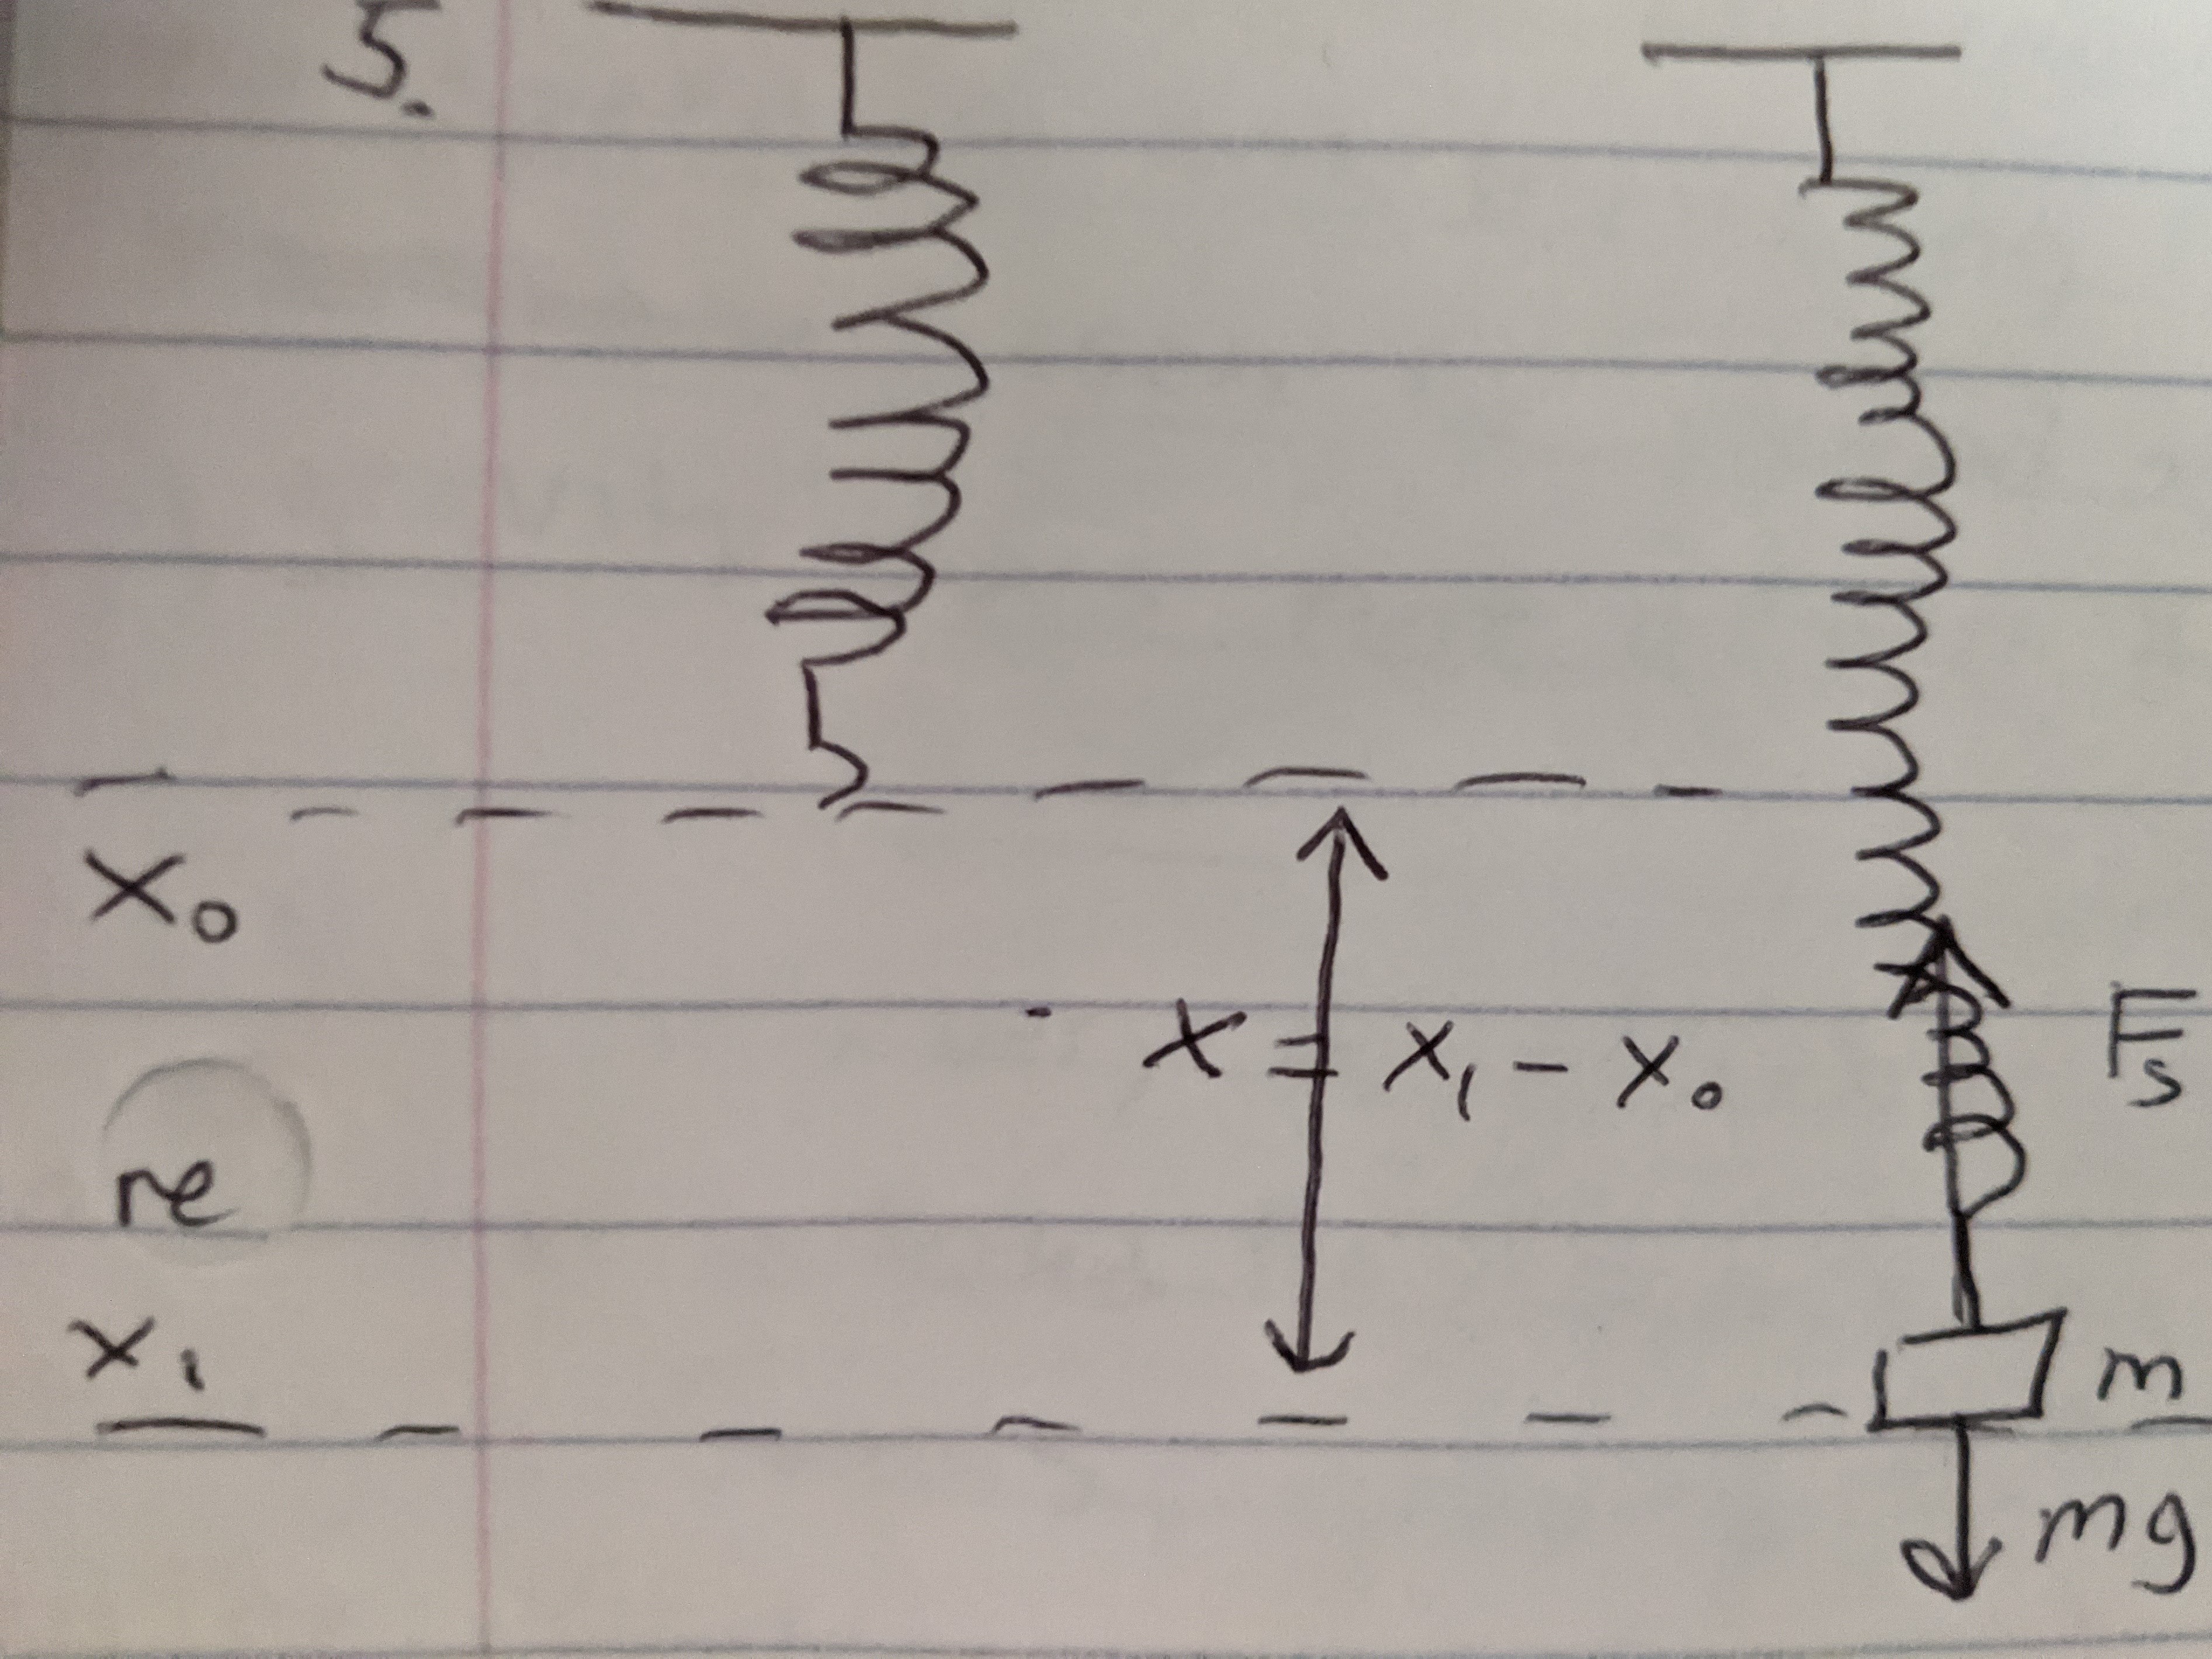 5.
x₀
x = x₁ - x₀
Fs
re
x₁
m
mg